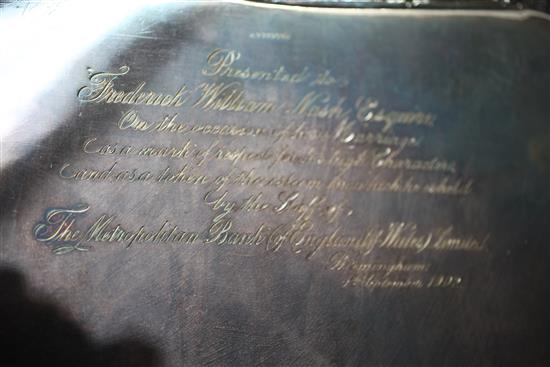 Presented to
Frederick William Nash Esquire,
On the occasion of his Marriage
as a mark of respect for his high Character,
and as a token of the esteem in which he is held
by the Staff of,
The Metropolitan Bank (of England & Wales) Limited,
Birmingham.
September, 1902.